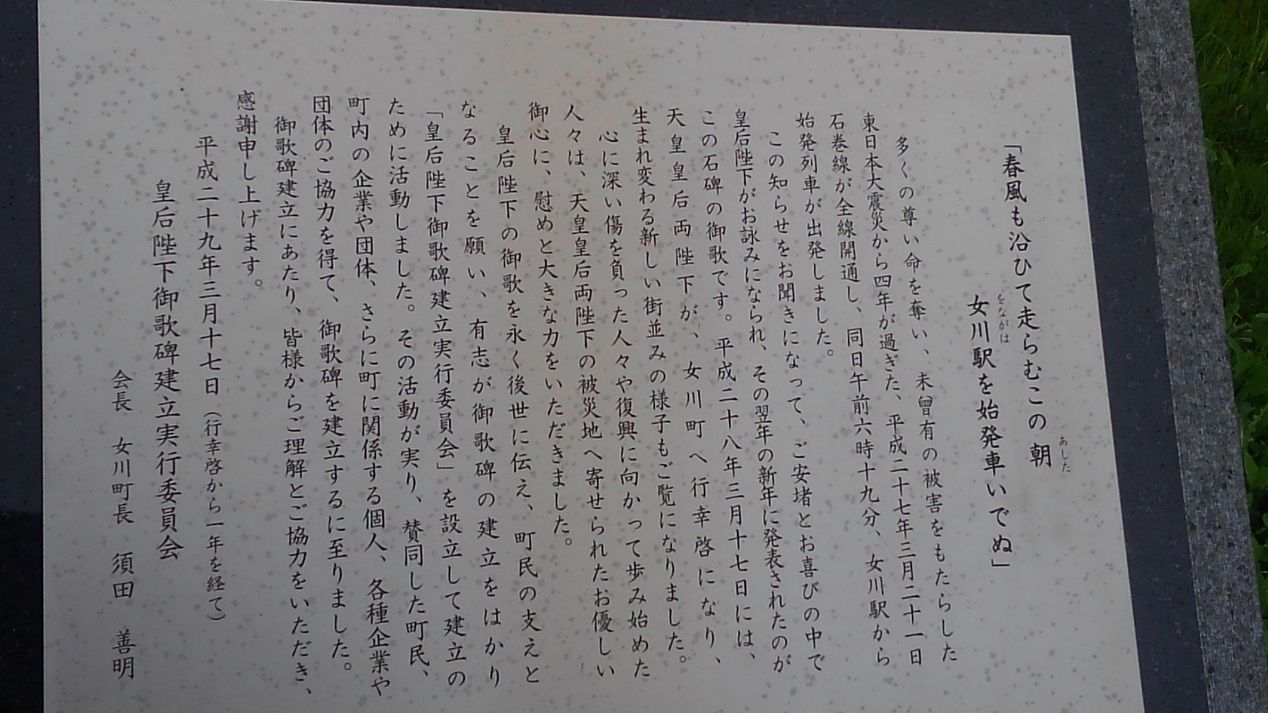 「春風も沿ひて走らむこの朝
あした
女川駅を始発車いでぬ」
をながは
多くの尊い命を奪い、未曾有の被害をもたらした
東日本大震災から四年が過ぎた、平成二十七年三月二十一日
石巻線が全線開通し、同日午前六時十九分、女川駅から
始発列車が出発しました。
この知らせをお聞きになって、ご安堵とお喜びの中で
皇后陛下がお詠みになられ、その翌年の新年に発表されたのが
この石碑の御歌です。平成二十八年三月十七日には、
天皇皇后両陛下が、女川町へ行幸啓になり、
生まれ変わる新しい街並みの様子もご覧になりました。
心に深い傷を負った人々や復興に向かって歩み始めた
人々は、天皇皇后両陛下の被災地へ寄せられたお優しい
御心に、慰めと大きな力をいただきました。
皇后陛下の御歌を永く後世に伝え、町民の支えと
なることを願い、有志が御歌碑の建立をはかり
「皇后陛下御歌碑建立実行委員会」を設立して建立の
ために活動しました。その活動が実り、賛同した町民、
町内の企業や団体、さらに町に関係する個人、各種企業や
団体のご協力を得て、御歌碑を建立するに至りました。
御歌碑建立にあたり、皆様からご理解とご協力をいただき、
感謝申し上げます。
平成二十九年三月十七日（行幸啓から一年を経て）
皇后陛下御歌碑建立実行委員会
会長 女川町長 須田 善明